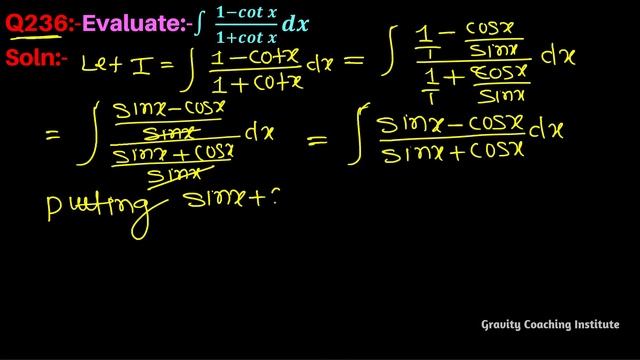 Q236:-Evaluate:-∫ (1−cot x)/(1+cot x) dx
Soln:- Let I = ∫ (1−Cotx)/(1+Cotx) dx = ∫ (1/1 − Cosx/Sinx)/(1/1 + Cosx/Sinx) dx
= ∫ ((Sinx−Cosx)/Sinx)/((Sinx+Cosx)/Sinx) dx = ∫ (Sinx−Cosx)/(Sinx+Cosx) dx
Putting Sinx+
Gravity Coaching Institute